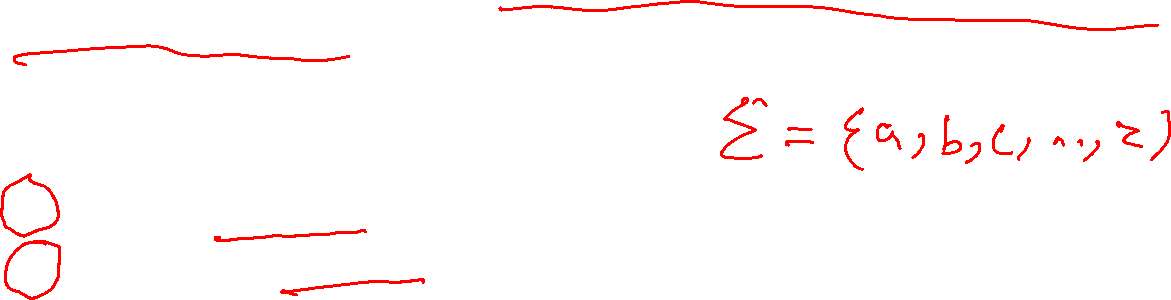 Σ = {a, b, c, ..., z}